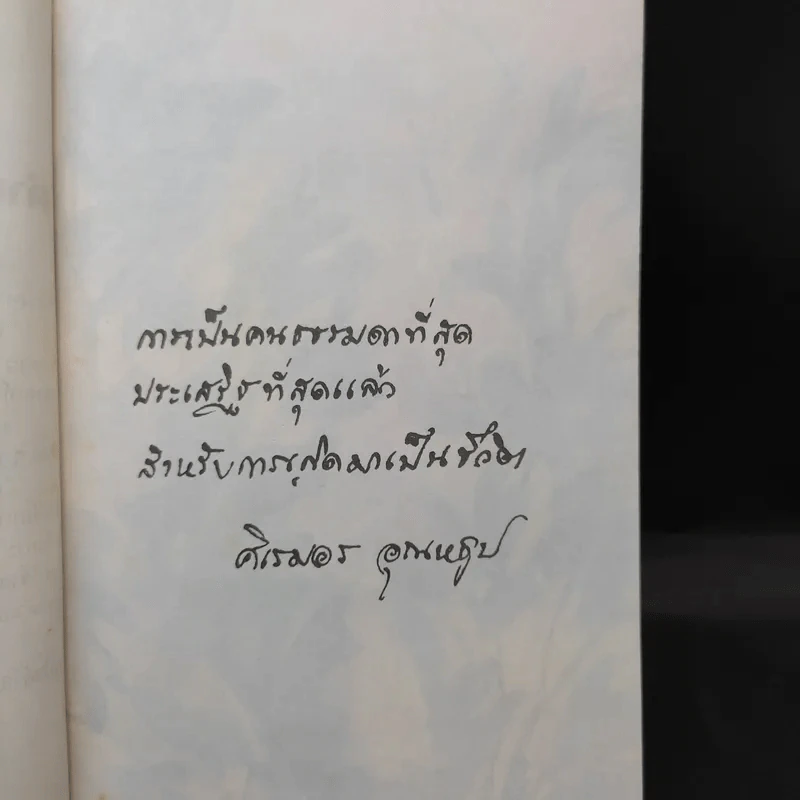 การเป็นคนธรรมดาที่สุด
ประเสริฐที่สุดแล้ว
สำหรับการเกิดมาเป็นชีวิต
ศิเรมอร อุณหธูป